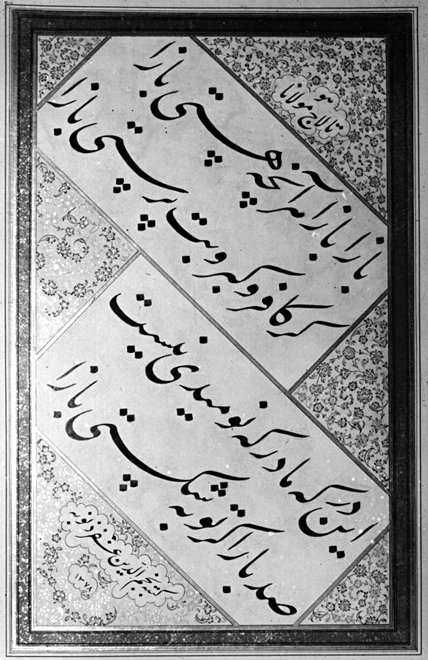 هو
مولانا
باز آ باز آ هر آنچه هستی باز آ
گر کافر و گبر و بت پرستی باز آ
این درگه ما درگه نومیدی نیست
صد بار اگر توبه شکستی باز آ
کتبه نجم الدین غفر ذنوبه